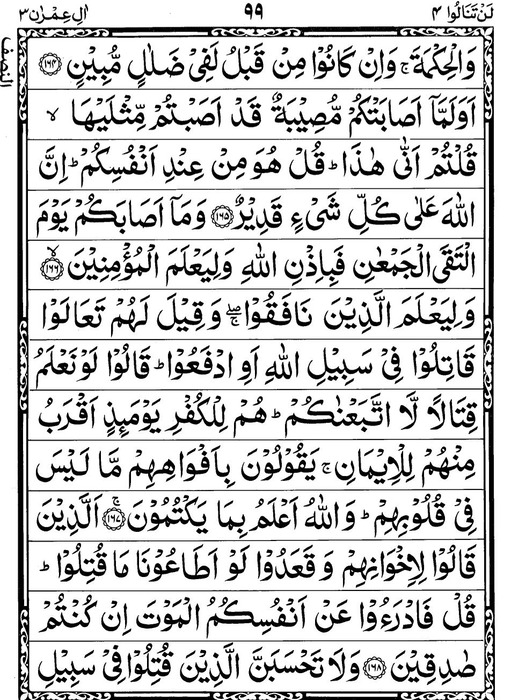 لَنْ تَنَالُوا ۴ ۹۹ اٰلِ عِمْرٰن ۳
النصف
وَالْحِكْمَةَ ۚ وَاِنْ كَانُوْا مِنْ قَبْلُ لَفِیْ ضَلٰلٍ مُّبِیْنٍ ﴿۱۶۴﴾
اَوَلَمَّاۤ اَصَابَتْكُمْ مُّصِیْبَةٌ قَدْ اَصَبْتُمْ مِّثْلَیْهَا ۙ
قُلْتُمْ اَنّٰی هٰذَا ؕ قُلْ هُوَ مِنْ عِنْدِ اَنْفُسِكُمْ ؕ اِنَّ
اللّٰهَ عَلٰی كُلِّ شَیْءٍ قَدِیْرٌ ﴿۱۶۵﴾ وَمَاۤ اَصَابَكُمْ یَوْمَ
الْتَقَی الْجَمْعٰنِ فَبِاِذْنِ اللّٰهِ وَلِیَعْلَمَ الْمُؤْمِنِیْنَ ﴿۱۶۶﴾ ۙ
وَلِیَعْلَمَ الَّذِیْنَ نَافَقُوْا ۖۚ وَقِیْلَ لَهُمْ تَعَالَوْا
قَاتِلُوْا فِیْ سَبِیْلِ اللّٰهِ اَوِ ادْفَعُوْا ؕ قَالُوْا لَوْ نَعْلَمُ
قِتَالًا لَّا اتَّبَعْنٰكُمْ ؕ هُمْ لِلْكُفْرِ یَوْمَىِٕذٍ اَقْرَبُ
مِنْهُمْ لِلْاِیْمَانِ ۚ یَقُوْلُوْنَ بِاَفْوَاهِهِمْ مَّا لَیْسَ
فِیْ قُلُوْبِهِمْ ؕ وَاللّٰهُ اَعْلَمُ بِمَا یَكْتُمُوْنَ ﴿۱۶۷﴾ ۚ اَلَّذِیْنَ
قَالُوْا لِاِخْوَانِهِمْ وَقَعَدُوْا لَوْ اَطَاعُوْنَا مَا قُتِلُوْا ؕ
قُلْ فَادْرَءُوْا عَنْ اَنْفُسِكُمُ الْمَوْتَ اِنْ كُنْتُمْ
صٰدِقِیْنَ ﴿۱۶۸﴾ وَلَا تَحْسَبَنَّ الَّذِیْنَ قُتِلُوْا فِیْ سَبِیْلِ